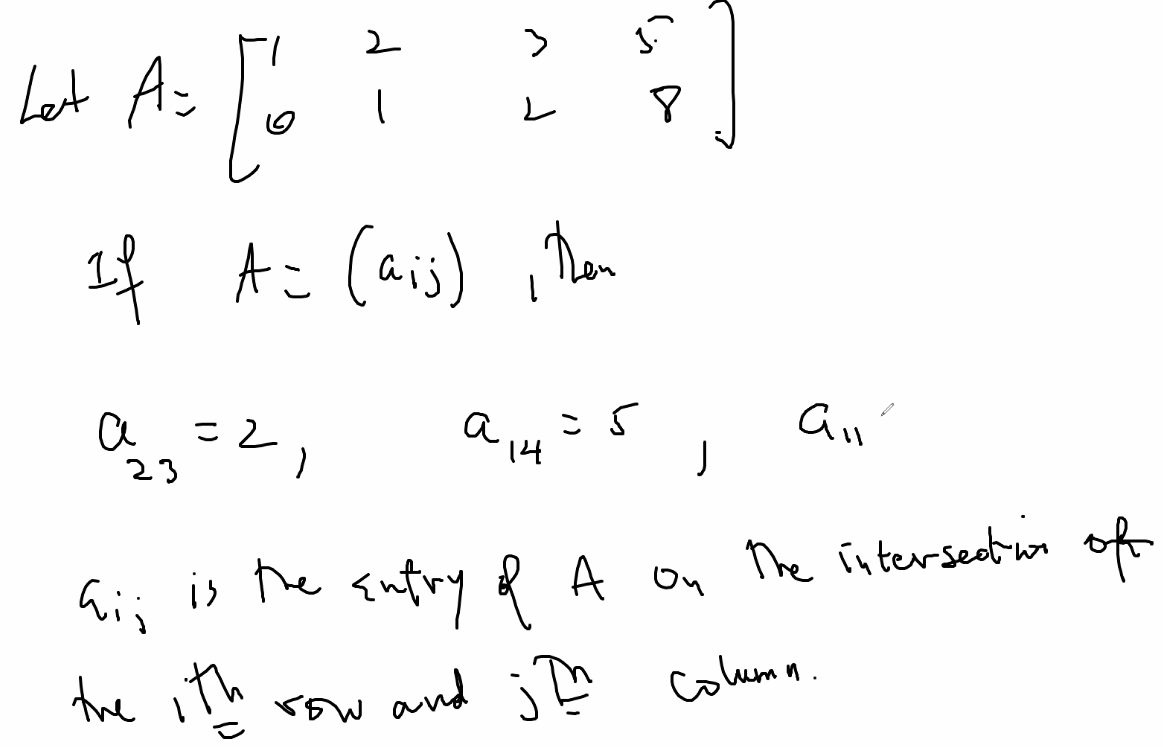 Let A = [1 2 3 5
0 1 2 8]
If A = (aij) , then
a23 = 2, a14 = 5, a11
aij is the entry of A on the intersection of
the ith row and jth column.